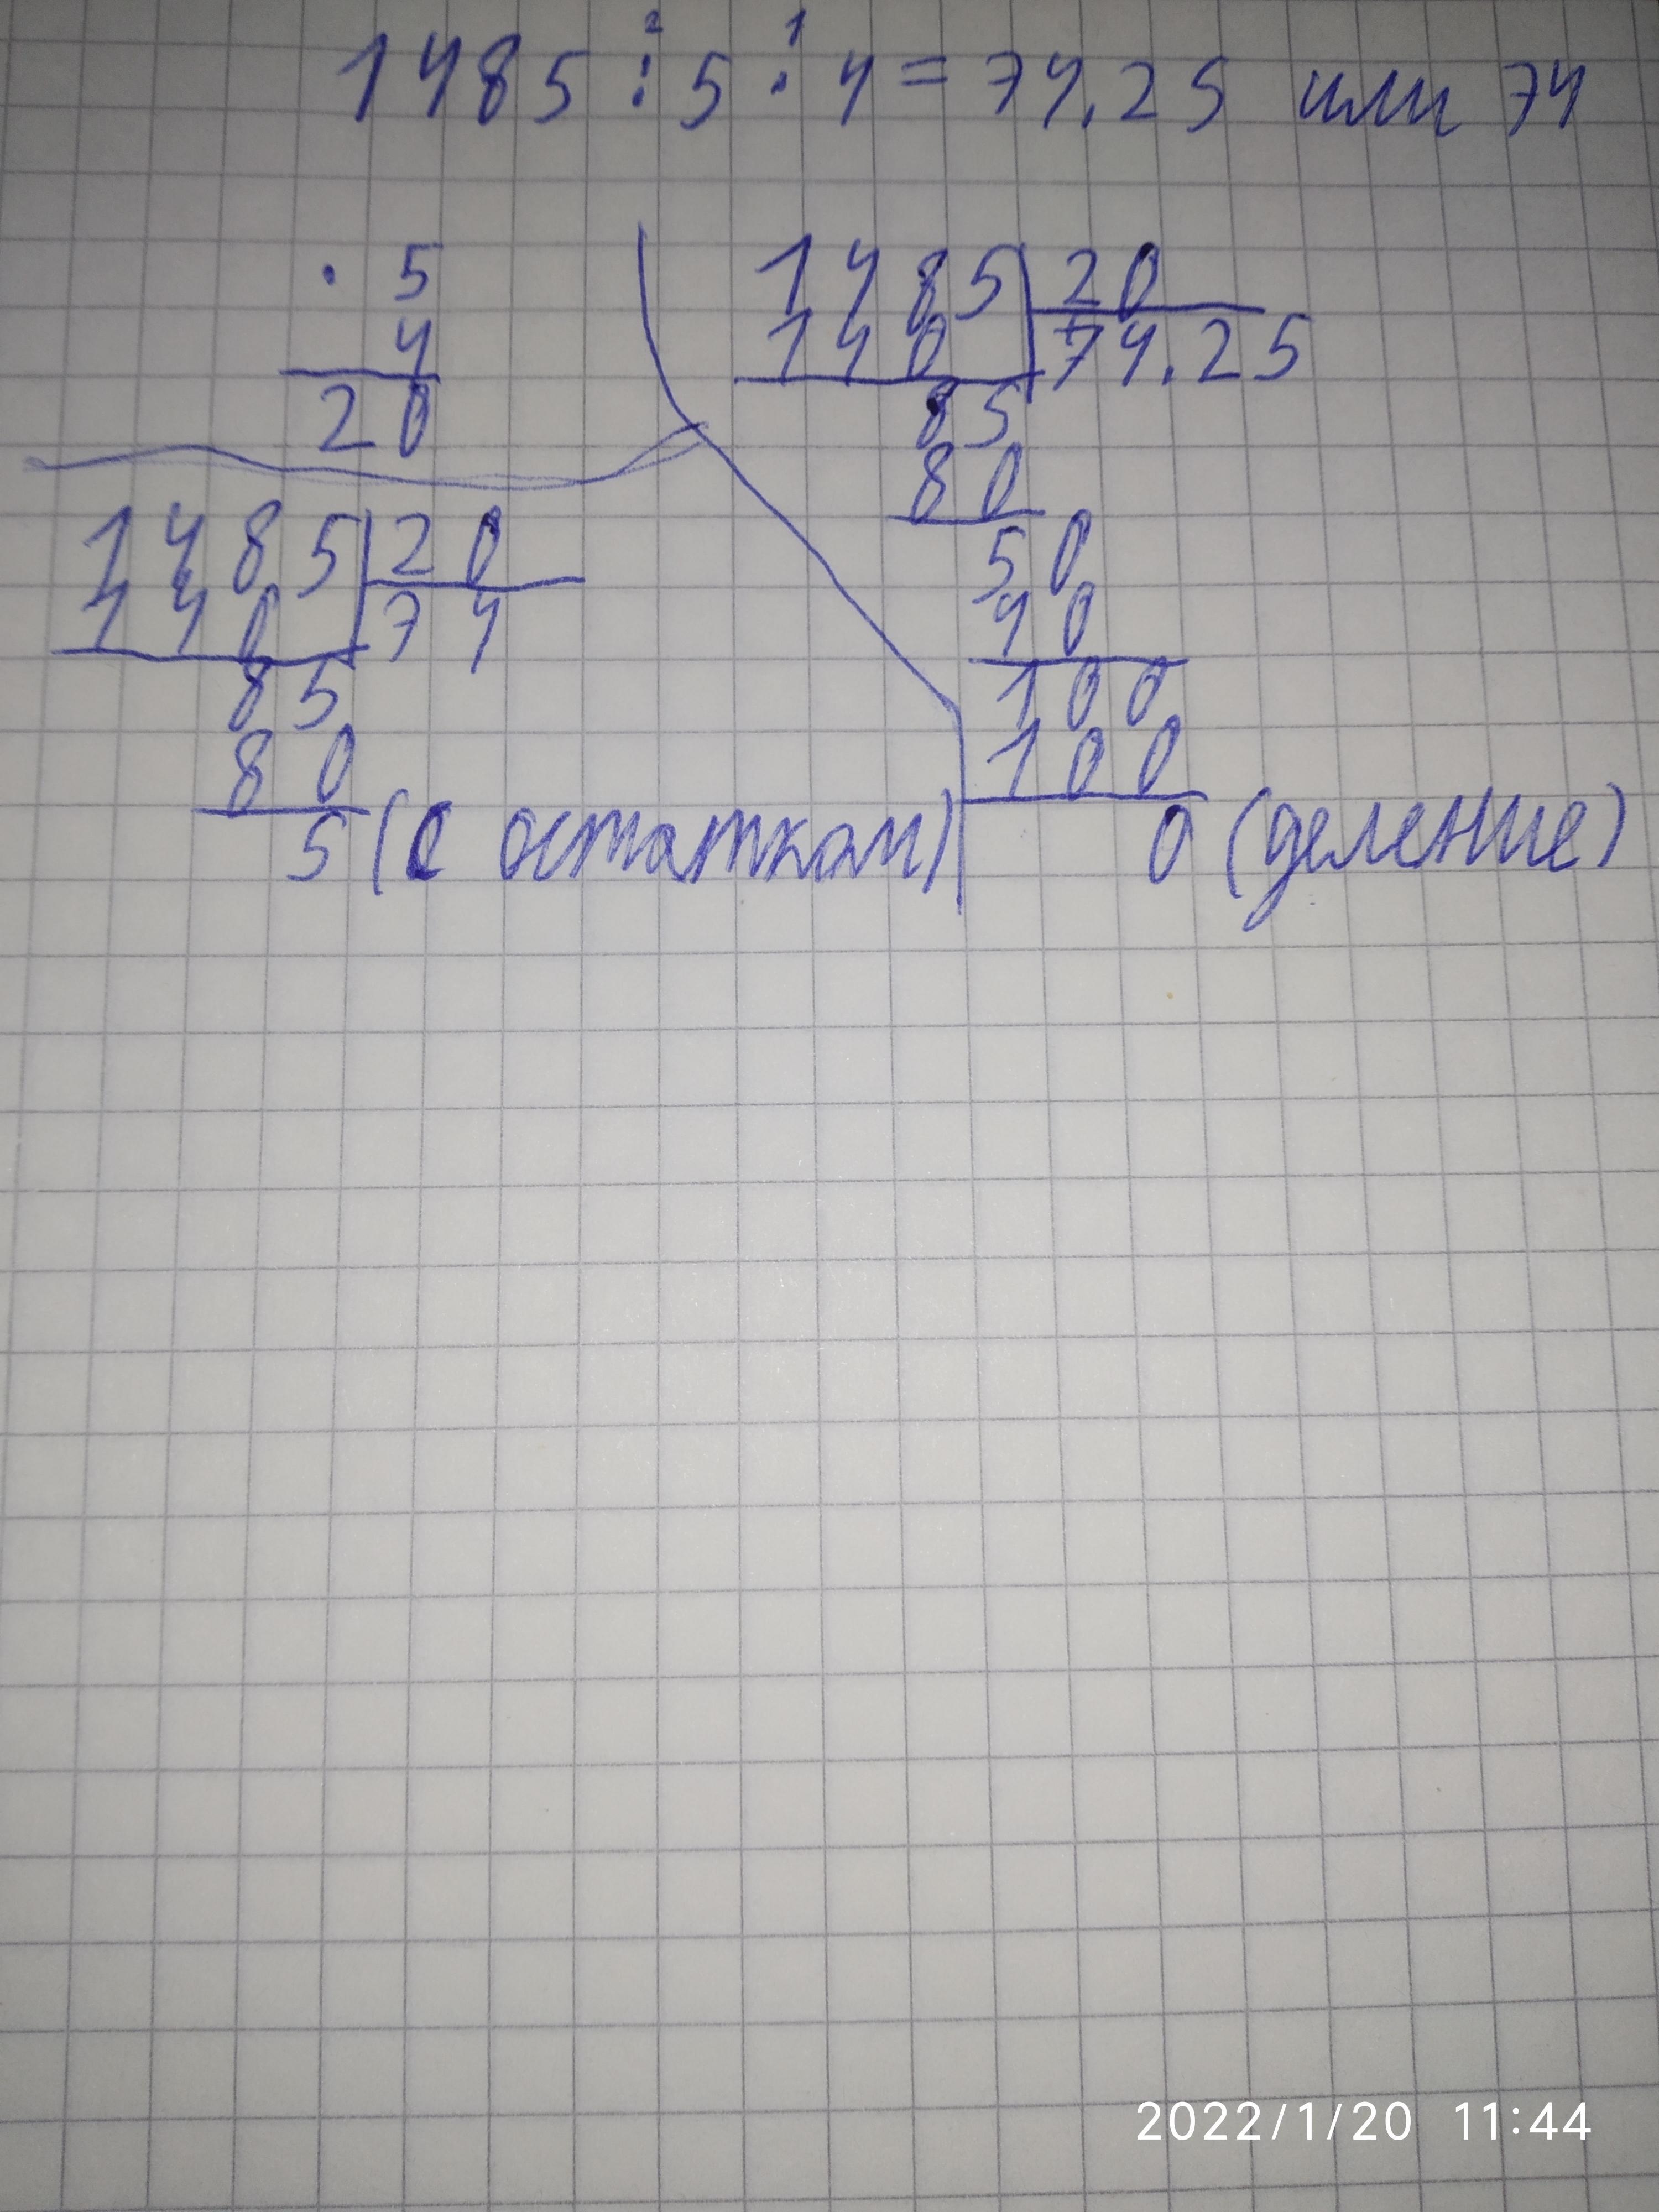 2 1
1485 : 5 · 4 = 74.25 или 74
· 5
4
20
1485 20
140 74.25
85
80
50
40
100
100
0 (деление)
1485 20
140 74
85
80
5 (с остатком)
2022/1/20 11:44